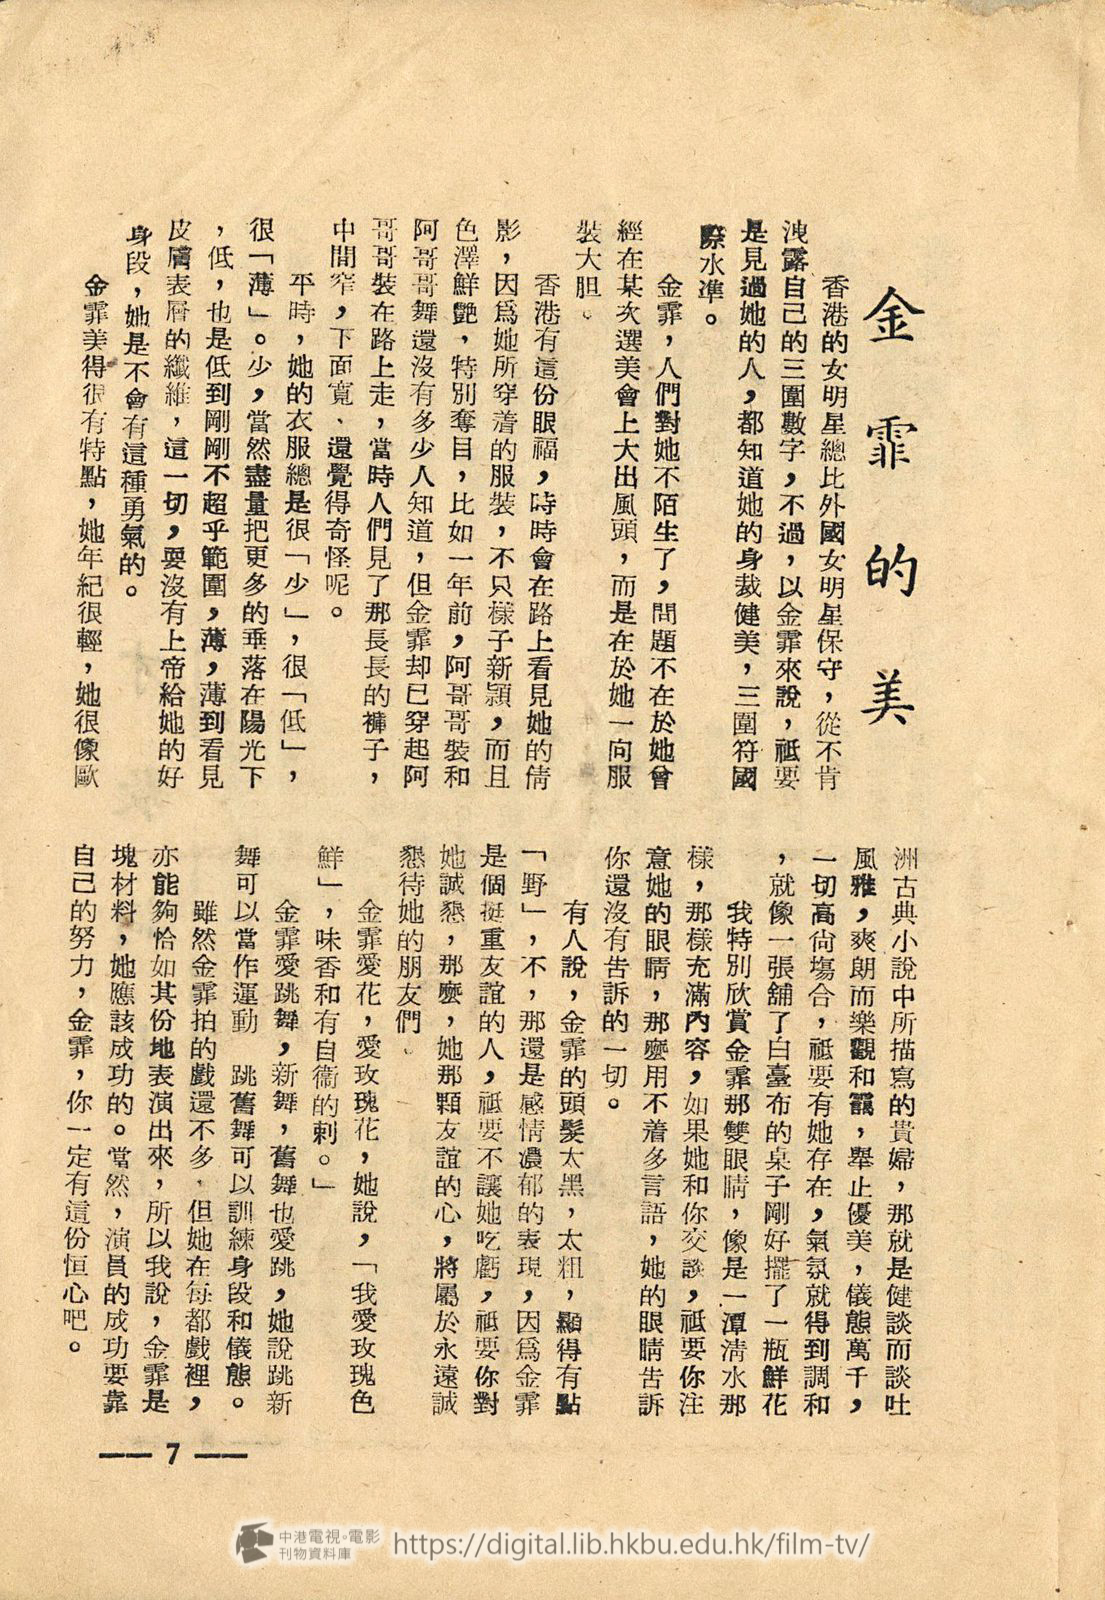 金霏的美
香港的女明星總比外國女明星保守，從不肯
洩露自己的三圍數字，不過，以金霏來說，祗要
是見過她的人，都知道她的身裁健美，三圍符國
際水準。
金霏，人們對她不陌生了，問題不在於她曾
經在某次選美會上大出風頭，而是在於她一向服
裝大胆。
香港有這份眼福，時時會在路上看見她的倩
影，因爲她所穿着的服裝，不只樣子新穎，而且
色澤鮮艷，特別奪目，比如一年前，阿哥哥裝和
阿哥哥舞還沒有多少人知道，但金霏却已穿起阿
哥哥裝在路上走，當時人們見了那長長的褲子，
中間窄，下面寬、還覺得奇怪呢。
平時，她的衣服總是很「少」，很「低」，
很「薄」。少，當然盡量把更多的垂落在陽光下
，低，也是低到剛剛不超乎範圍，薄，薄到看見
皮膚表層的纖維，這一切，要沒有上帝給她的好
身段，她是不會有這種勇氣的。
金霏美得很有特點，她年紀很輕，她很像歐
洲古典小說中所描寫的貴婦，那就是健談而談吐
風雅，爽朗而樂觀和靄，舉止優美，儀態萬千，
一切高尙塲合，祗要有她存在，氣氛就得到調和
，就像一張舖了白臺布的桌子剛好擺了一瓶鮮花
我特別欣賞金霏那雙眼睛，像是一潭清水那
樣，那樣充滿內容，如果她和你交談，祗要你注
意她的眼睛，那麼用不着多言語，她的眼睛告訴
你還沒有告訴的一切。
有人說，金霏的頭髮太黑，太粗，顯得有點
「野」，不，那還是感情濃郁的表現，因爲金霏
是個挺重友誼的人，祗要不讓她吃虧，祗要你對
她誠懇，那麼，她那顆友誼的心，將屬於永遠誠
懇待她的朋友們。
金霏愛花，愛玫瑰花，她說，「我愛玫瑰色
鮮」，味香和有自衞的刺。」
金霏愛跳舞，新舞，舊舞也愛跳，她說跳新
舞可以當作運動　跳舊舞可以訓練身段和儀態。
雖然金霏拍的戲還不多，但她在每都戲裡，
亦能夠恰如其份地表演出來，所以我說，金霏是
塊材料，她應該成功的。當然，演員的成功要靠
自己的努力，金霏，你一定有這份恒心吧。
7
中港電視·電影
刊物資料庫
https://digital.lib.hkbu.edu.hk/film-tv/